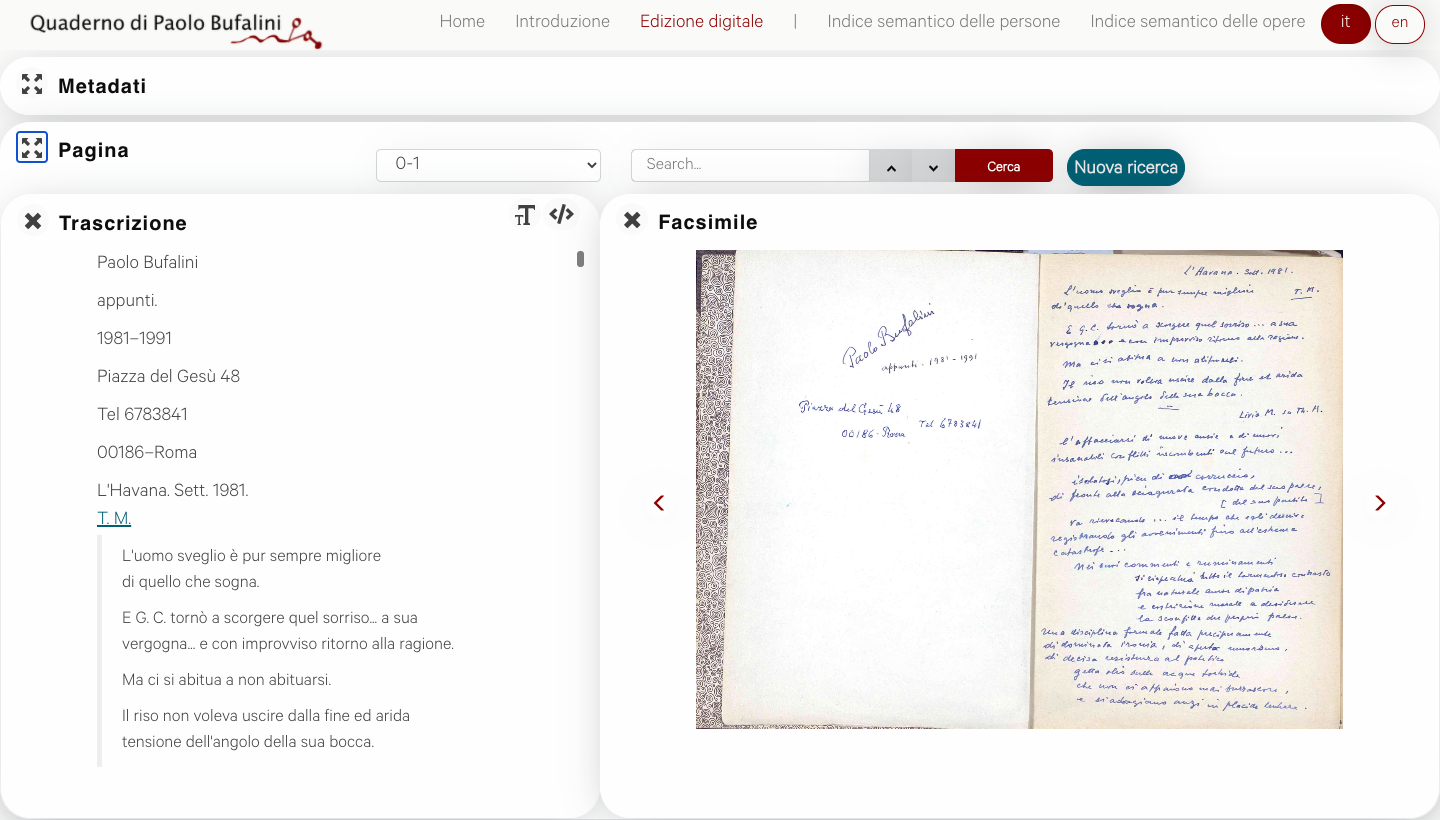 Quaderno di Paolo Bufalini
Home Introduzione Edizione digitale | Indice semantico delle persone Indice semantico delle opere it en
Metadati
Pagina
0-1
Search...
Cerca
Nuova ricerca
Trascrizione
Paolo Bufalini
appunti.
1981–1991
Piazza del Gesù 48
Tel 6783841
00186–Roma
L'Havana. Sett. 1981.
T. M.
L'uomo sveglio è pur sempre migliore
di quello che sogna.
E G. C. tornò a scorgere quel sorriso... a sua
vergogna... e con improvviso ritorno alla ragione.
Ma ci si abitua a non abituarsi.
Il riso non voleva uscire dalla fine ed arida
tensione dell'angolo della sua bocca.
Facsimile
Paolo Bufalini
appunti. 1981-1991
Piazza del Gesù 48
Tel 6783841
00186-Roma
L'Havana. Sett. 1981.
L'uomo sveglio è pur sempre migliore T. M.
di quello che sogna.
E G.C. tornò a scorgere quel sorriso... a sua
vergogna... e con improvviso ritorno alla ragione.
Ma ci si abitua a non abituarsi.
Il riso non voleva uscire dalla fine ed arida
tensione dell'angolo della sua bocca.
Livio M. su Th. M.
l'affacciarsi di nuove ansie e di nuovi
insanabili conflitti incombenti sul futuro...
isolatosi, pieno di corruccio,
di fronte alla sciagurata condotta del suo paese,
[del suo partito]
va rievocando ... il tempo che egli descrive
registrando gli avvenimenti fino all'estrema
catastrofe ...
Nei suoi commenti e ruminamenti
si rispecchia tutto il tormentoso contrasto
fra naturale amor di patria
e costrizione morale a desiderare
la sconfitta del proprio paese.
Una disciplina formale fatta precipuamente
di dominata ironia, di aperto umorismo,
di decisa resistenza al patetico
getta olio sulle acque torbide
che non ci appaiono mai burrascose,
e si adagiano anzi in placide lustre.